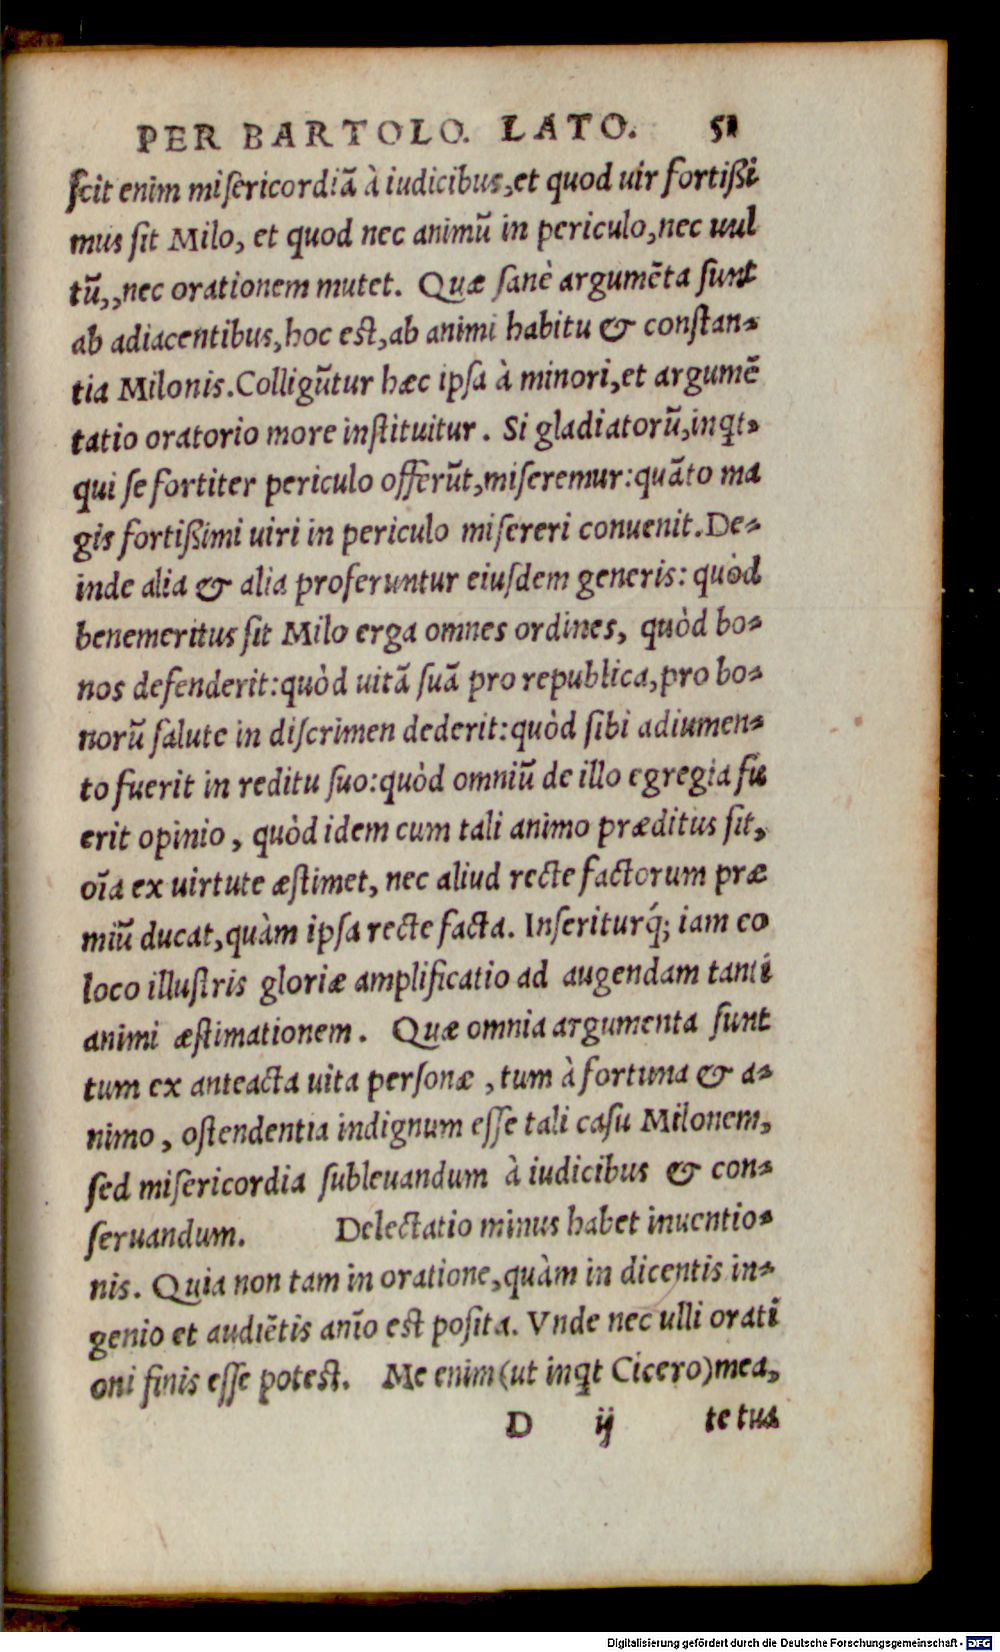 PER BARTOLO. LATO. 51
ſcit enim miſericordiā à iudicibus, et quod uir fortißi
mus ſit Milo, et quod nec animū in periculo, nec uul
tū,, nec orationem mutet. Quæ ſanè argumēta ſunt
ab adiacentibus, hoc eſt, ab animi habitu & conſtan-
tia Milonis. Colligūtur hæc ipſa à minori, et argumē
tatio oratorio more inſtituitur. Si gladiatorū, inq̃t,
qui ſe fortiter periculo offerūt, miſeremur: quāto ma
gis fortißimi uiri in periculo miſereri conuenit. De-
inde alia & alia proferuntur eiuſdem generis: quòd
benemeritus ſit Milo erga omnes ordines, quòd bo-
nos defenderit: quòd uitā ſuā pro republica, pro bo-
norū ſalute in diſcrimen dederit: quòd ſibi adiumen-
to fuerit in reditu ſuo: quòd omniū de illo egregia fu
erit opinio, quòd idem cum tali animo præditus ſit,
oīa ex uirtute æſtimet, nec aliud recte factorum præ
miū ducat, quàm ipſa recte facta. Inſeriturq́; iam eo
loco illuſtris gloriæ amplificatio ad augendam tanti
animi æſtimationem. Quæ omnia argumenta ſunt
tum ex anteacta uita perſonæ, tum à fortuna & a-
nimo, oſtendentia indignum eſſe tali caſu Milonem,
ſed miſericordia ſubleuandum à iudicibus & con-
ſeruandum. Delectatio minus habet inuentio-
nis. Quia non tam in oratione, quàm in dicentis in-
genio et audiētis anīo eſt poſita. Vnde nec ulli orati
oni finis eſſe poteſt. Me enim (ut inq̃t Cicero) mea,
D ij te tua
Digitalisierung gefördert durch die Deutsche Forschungsgemeinschaft - DFG